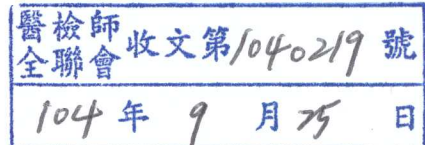 醫檢師全聯會收文第1040219號
104年9月25日